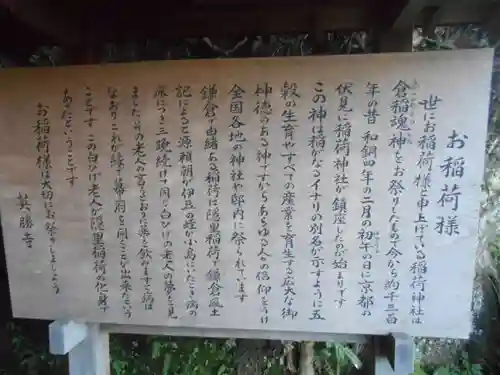 お稲荷様
世にお稲荷様と申上げている稲荷神社は
倉稲魂神をお祭りしたもので今から約千三百
年の昔 和銅四年の二月の初午の日に京都の
伏見に稲荷神社が鎮座したのが始まりです
この神は稲がなるイナリの別名が示すように五
穀の生育やすべての産業を育生する広大な御
神徳のある神ですからあらゆる人々の信仰をうけ
全国各地の神社や邸内に祭られています
鎌倉で由緒ある稲荷は隠里稲荷で鎌倉風土
記によると源頼朝が伊豆の蛭が小島にいたとき病の
床につき三晩続けて同じ白ひげの老人の夢を見
ましたその老人の言うとおりに薬を飲みますと病は
なおりこれが縁で幕府を開くことが出来たという
ことです この白ひげ老人が隠里稲荷の化身で
あったということです
お稲荷様は大切にお祭りしましょう
其勝寺